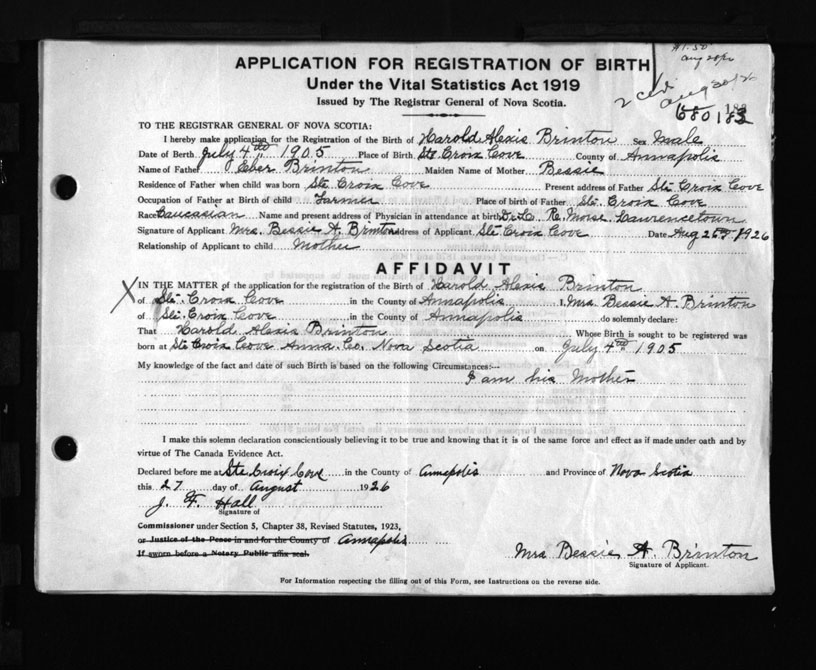 $1.50
Aug 20/26
APPLICATION FOR REGISTRATION OF BIRTH
Under the Vital Statistics Act 1919
Issued by The Registrar General of Nova Scotia.
TO THE REGISTRAR GENERAL OF NOVA SCOTIA:
I hereby make application for the Registration of the Birth of Harold Alexis Brinton Sex Male
Date of Birth July 4th 1905 Place of Birth Ste Croix Cove County of Annapolis
Name of Father Eber Brinton Maiden Name of Mother Bessie
Residence of Father when child was born Ste Croix Cove Present address of Father Ste Croix Cove
Occupation of Father at Birth of child Farmer Place of birth of Father Ste. Croix Cove
Race Caucasian Name and present address of Physician in attendance at birth Dr. R. Morse Lawrencetown
Signature of Applicant Mrs. Bessie A. Brinton address of Applicant Ste Croix Cove Date Aug 1926
Relationship of Applicant to child Mother
AFFIDAVIT
X IN THE MATTER of the application for the registration of the Birth of Harold Alexis Brinton
of Ste. Croix Cove in the County of Annapolis I, Mrs. Bessie A. Brinton
of Ste. Croix Cove in the County of Annapolis do solemnly declare:
That Harold Alexis Brinton Whose Birth is sought to be registered was
born at Ste Croix Cove Anna. Co. Nova Scotia on July 4th 1905
My knowledge of the fact and date of such Birth is based on the following Circumstances:—
I am his Mother
I make this solemn declaration conscientiously believing it to be true and knowing that it is of the same force and effect as if made under oath and by
virtue of The Canada Evidence Act.
Declared before me at Ste Croix Cove in the County of Annapolis and Province of Nova Scotia
this 27 day of August 1926
J. F. Hall
Signature of
Commissioner under Section 5, Chapter 38, Revised Statutes, 1923,
or Justice of the Peace in and for the County of Annapolis
If sworn before a Notary Public affix seal.
Mrs Bessie A. Brinton
Signature of Applicant.
For Information respecting the filling out of this Form, see Instructions on the reverse side.